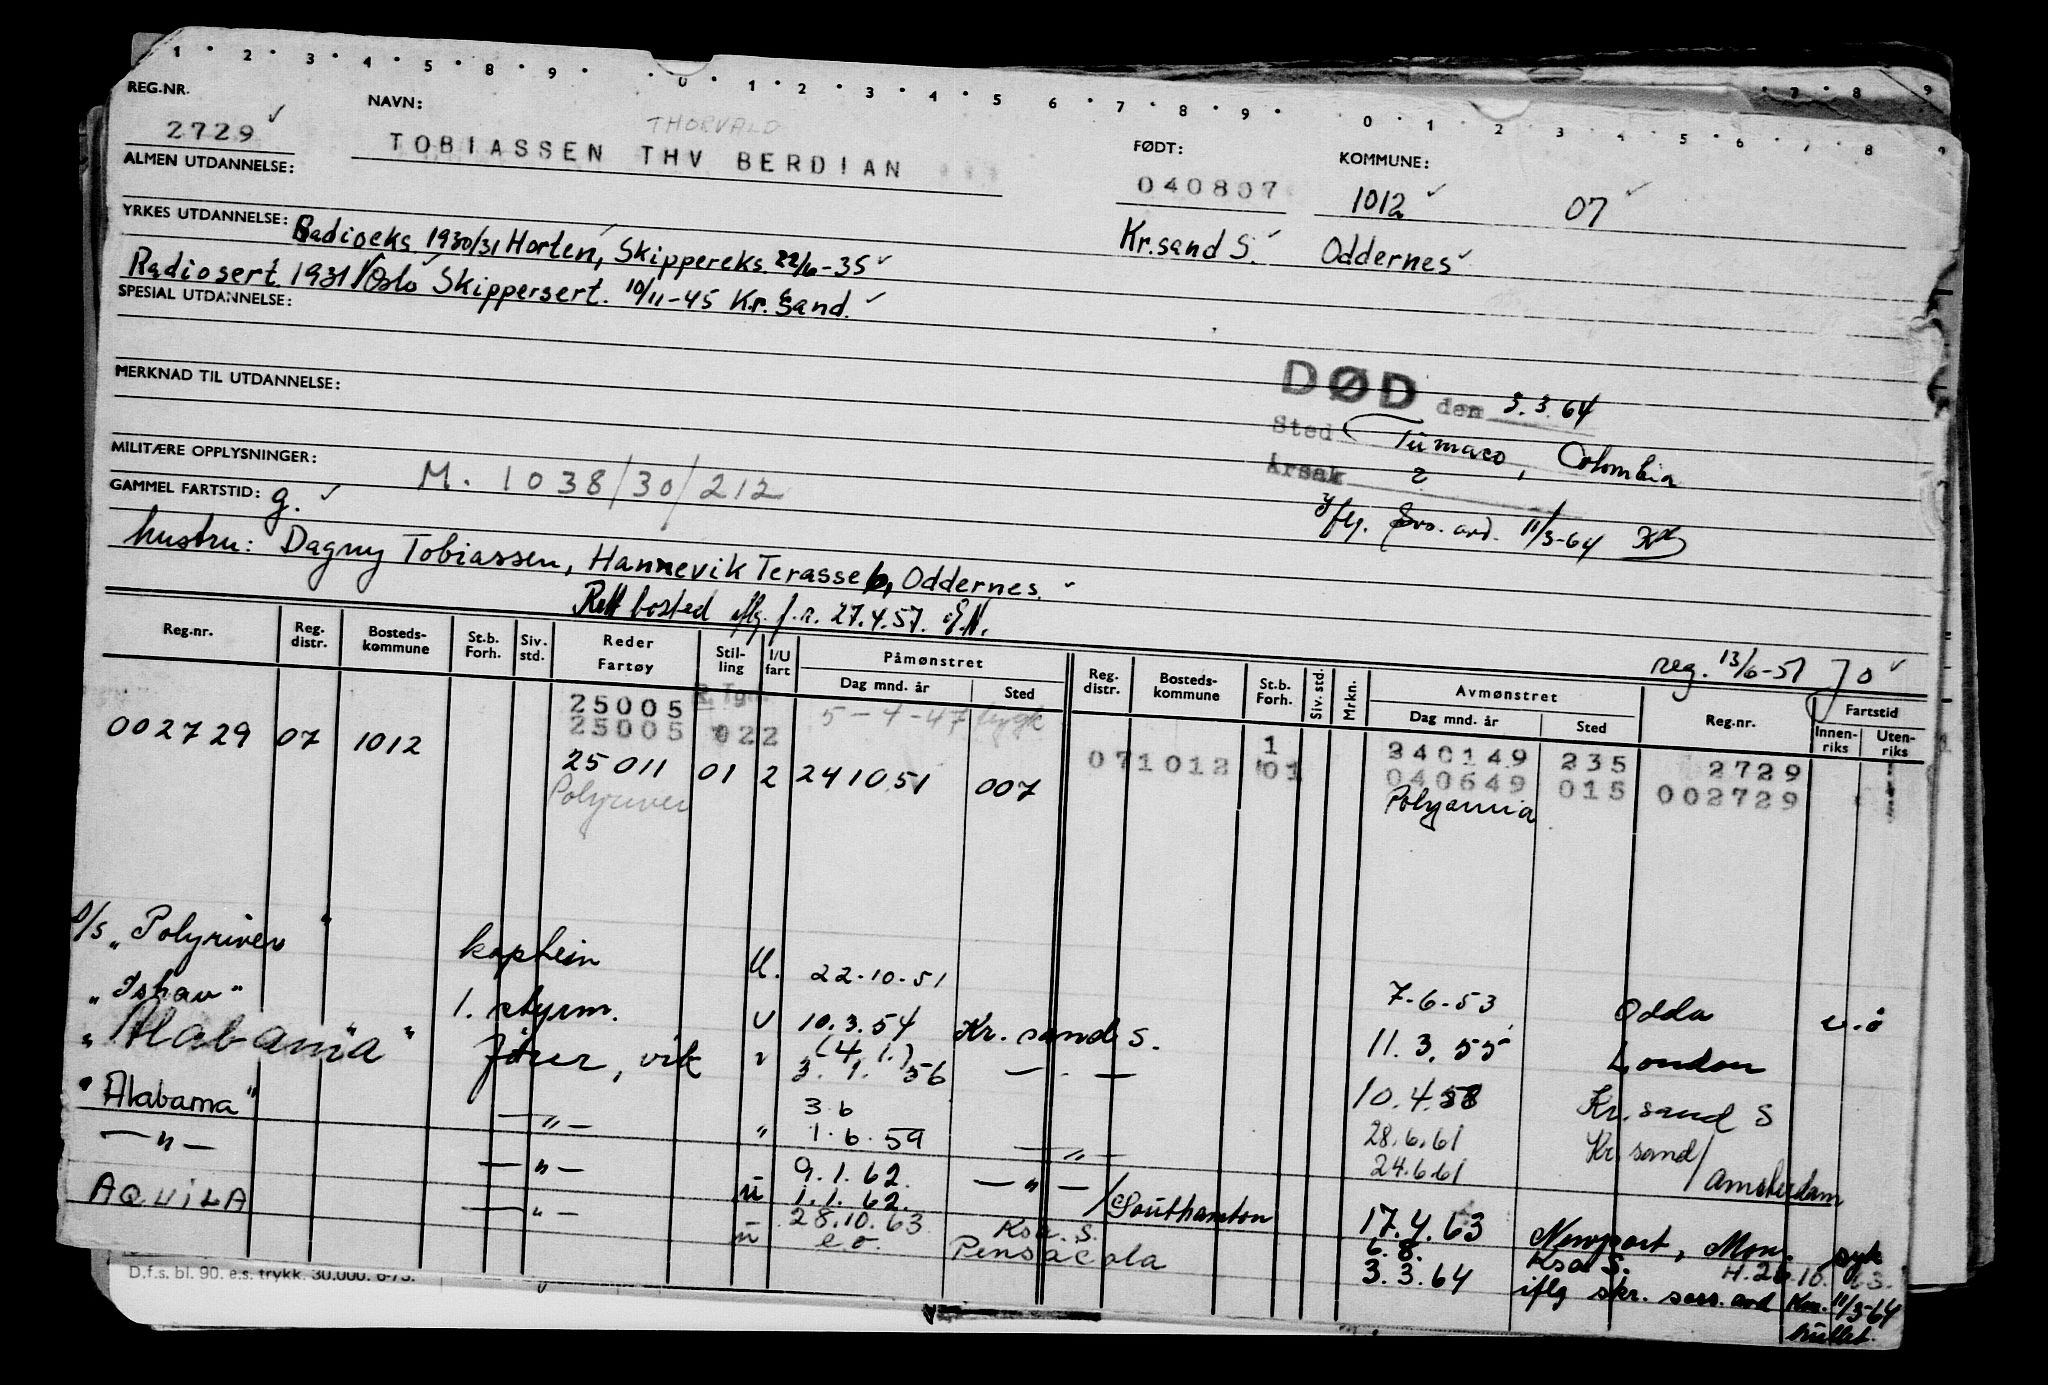 1 2 3 4 5 8 9 0 1 2 3 4 5 6 7 8 9 0 1 2 3 4 5 6 7 8 9
REG.NR. 2729
NAVN: THORVALD
TOBIASSEN THV BERDIAN
FØDT: 040807
KOMMUNE: 1012 07
ALMEN UTDANNELSE:
Kr.sand S. Oddernes
YRKES UTDANNELSE: Radioeks 1930/31 Horten, Skippereks. 22/6-35
Radiosert. 1931 Oslo Skippersert. 10/11-45 Kr. Sand.
SPESIAL UTDANNELSE:
MERKNAD TIL UTDANNELSE:
DØD den 3.3.64
Sted Tumaco, Colombia
Årsak ?
11/3-64
MILITÆRE OPPLYSNINGER:
GAMMEL FARTSTID: g. M. 1038/30/212
hustru: Dagny Tobiassen, Hannevik Terasse 6, Oddernes.
Rett bosted iflg. f.r. 27.4.57. E.N.
reg. 13/6-51 Jo
Reg.nr. Reg. distr. Bosteds-kommune St.b. Forh. Siv. std. Reder Fartøy Stil-ling I/U fart Påmønstret Dag mnd. år Sted Reg. distr. Bosteds-kommune St.b. Forh. Siv. std. Mrkn. Avmønstret Dag mnd. år Sted Reg.nr. Fartstid Innen-riks Uten-riks
25005 R. Tgr. 5-4-47 1 240149 235 2729
002729 07 1012 25005 022 071012 01 040649 015 002729
25011 01 2 241051 007 Polyannia
Polyriver
D/S "Polyriver" kaptein U. 22.10.51 7-6-53 Odda u.ø
"Ishav" 1. styrm. U 10.3.54 Kr. sand S. 11.3.55 London
"Alabama" fører, vik (4.1.) 3.1.56 10.4.58 Kr. sand S
"Alabama" — " — " 3.6 1.6.59 — " — 28.6.61 24.6.61 Kr. sand / Amsterdam
— " — — " — u 9.1.62. 1.1.62. — " — / Southamton 17.4.63 Newport, Mon. syk
AQUILA — " — u 28.10.63 e.o. Ksa. S. Pensacola 6.8. Ksa S. H.26.10.63.
3.3.64 iflg skr. sess. avd Ksa. 11/3-64
D.f.s. bl. 90. e.s. trykk. 30.000. 6-75.